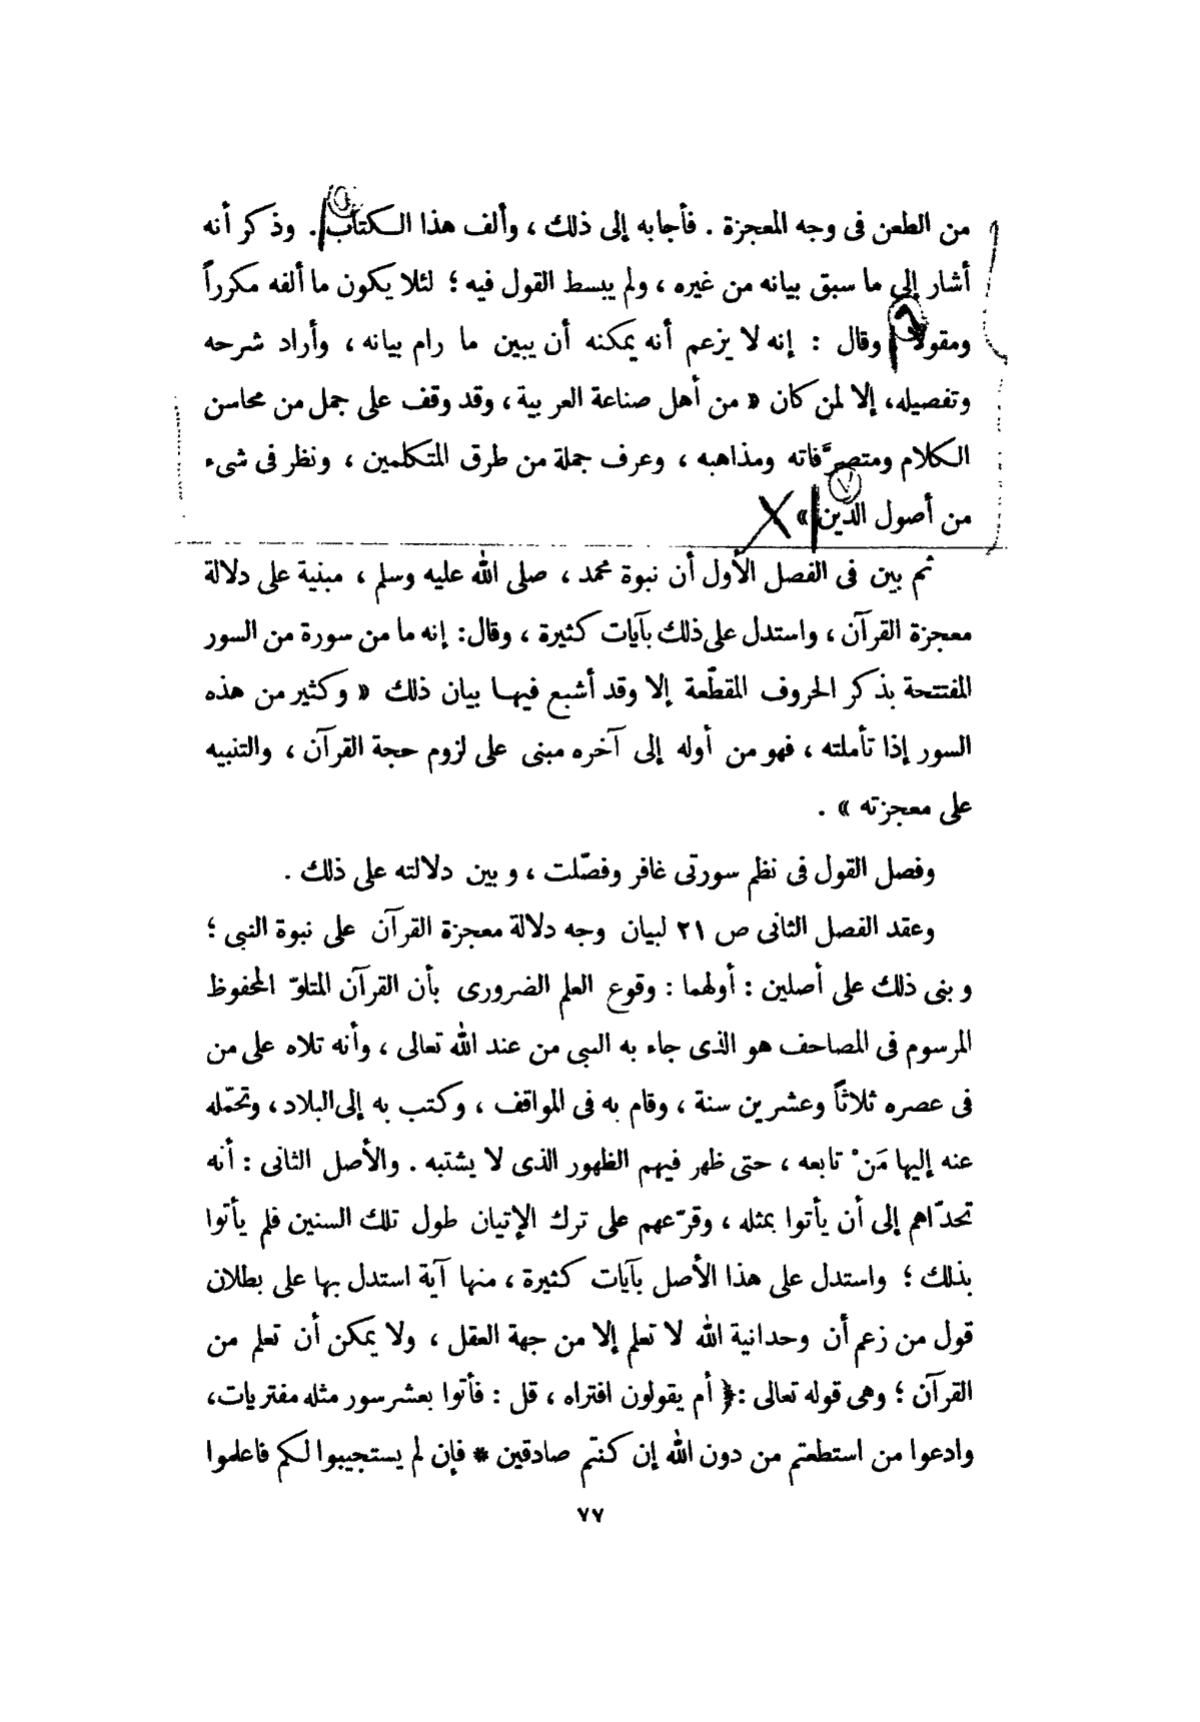 من الطعن فى وجه المعجزة . فأجابه إلى ذلك ، وألف هذا الكتاب . وذكر أنه
أشار إلى ما سبق بيانه من غيره ، ولم يبسط القول فيه ؛ لئلا يكون ما ألفه مكرراً
ومقولا وقال : إنه لا يزعم أنه يمكنه أن يبين ما رام بيانه ، وأراد شرحه
وتفصيله، إلا لمن كان « من أهل صناعة العربية ، وقد وقف على جمل من محاسن
الكلام ومتصرَّفاته ومذاهبه ، وعرف جملة من طرق المتكلمين ، ونظر فى شىء
من أصول الدين »
ثم بين فى الفصل الأول أن نبوة محمد ، صلى الله عليه وسلم ، مبنية على دلالة
معجزة القرآن ، واستدل على ذلك بآيات كثيرة ، وقال: إنه ما من سورة من السور
المفتتحة بذكر الحروف المقطّعة إلا وقد أشبع فيها بيان ذلك « وكثير من هذه
السور إذا تأملته ، فهو من أوله إلى آخره مبنى على لزوم حجة القرآن ، والتنبيه
على معجزته » .
وفصل القول فى نظم سورتى غافر وفصّلت ، وبين دلالته على ذلك .
وعقد الفصل الثانى ص ٢١ لبيان وجه دلالة معجزة القرآن على نبوة النبى ؛
وبنى ذلك على أصلين : أولهما : وقوع العلم الضرورى بأن القرآن المتلوّ المحفوظ
المرسوم فى المصاحف هو الذى جاء به النبى من عند الله تعالى ، وأنه تلاه على من
فى عصره ثلاثاً وعشرين سنة ، وقام به فى المواقف ، وكتب به إلى البلاد ، وتحمّله
عنه إليها مَنْ تابعه ، حتى ظهر فيهم الظهور الذى لا يشتبه . والأصل الثانى : أنه
تحدّاهم إلى أن يأتوا بمثله ، وقرّعهم على ترك الإتيان طول تلك السنين فلم يأتوا
بذلك ؛ واستدل على هذا الأصل بآيات كثيرة ، منها آية استدل بها على بطلان
قول من زعم أن وحدانية الله لا تعلم إلا من جهة العقل ، ولا يمكن أن تعلم من
القرآن ؛ وهى قوله تعالى :﴿ أم يقولون افتراه ، قل : فأتوا بعشر سور مثله مفتريات،
وادعوا من استطعتم من دون الله إن كنتم صادقين * فإن لم يستجيبوا لكم فاعلموا
٧٧